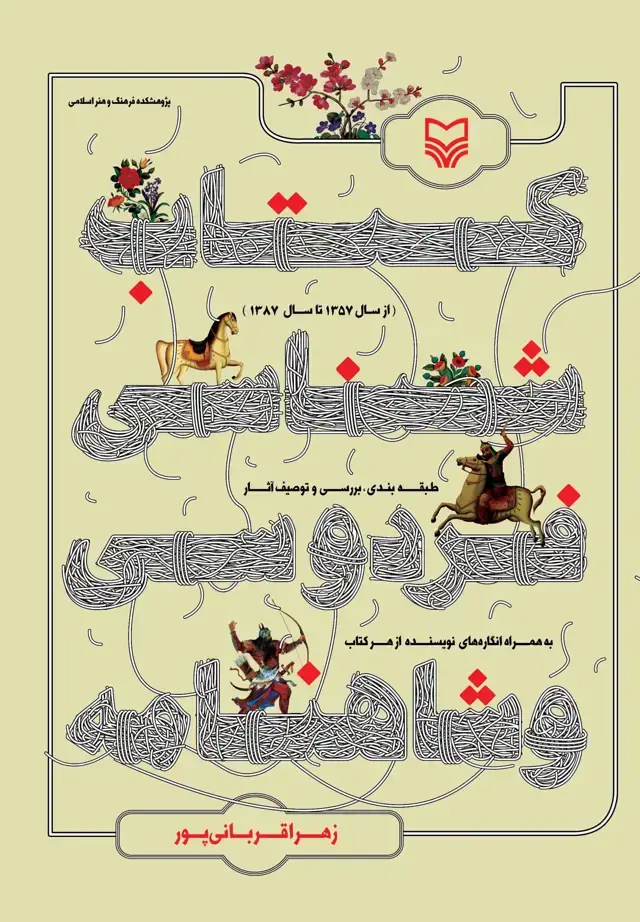 پژوهشکده فرهنگ و هنر اسلامی
کتاب
( از سال ۱۳۵۷ تا سال ۱۳۸۷ )
شناسی
طبقه بندی، بررسی و توصیف آثار
فردوسی
به همراه انگاره‌های نویسنده از هر کتاب
و شاهنامه
زهرا قربانی‌پور